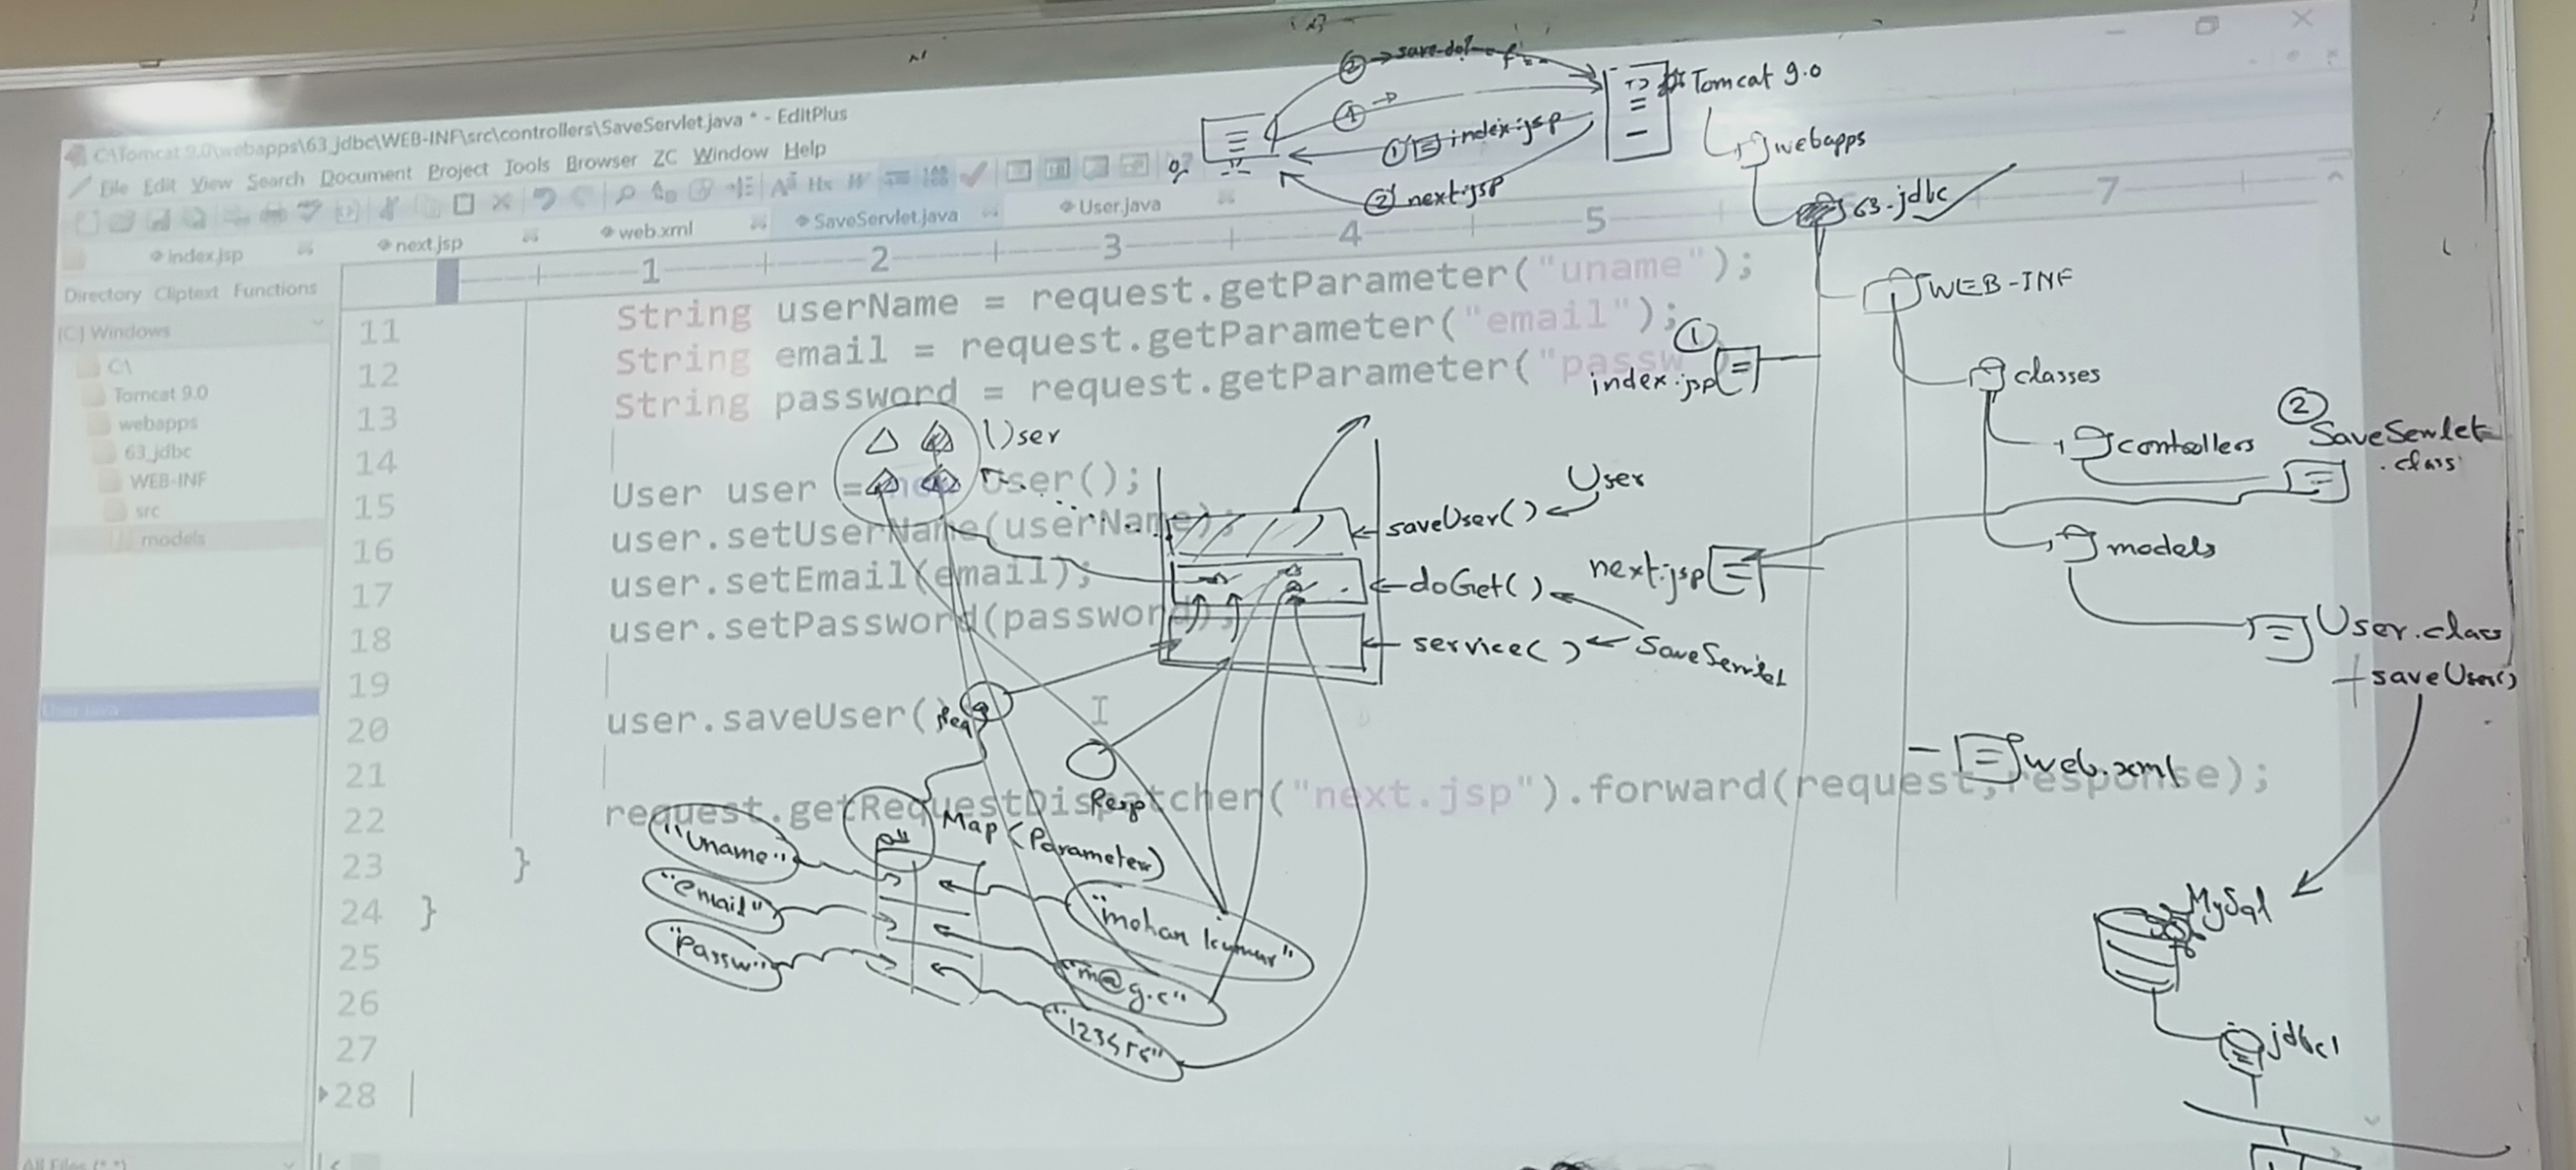 C:\Tomcat 9.0\webapps\63_jdbc\WEB-INF\src\controllers\SaveServlet.java * - EditPlus
File Edit View Search Document Project Tools Browser ZC Window Help
index.jsp next.jsp web.xml SaveServlet.java User.java
Directory Cliptext Functions
1 2 3 4 5 7
[C:] Windows
C:\
Tomcat 9.0
webapps
63_jdbc
WEB-INF
src
models
User.java
11 String userName = request.getParameter("uname");
12 String email = request.getParameter("email");
13 String password = request.getParameter("passw
14
15 User user = new User();
16 user.setUserName(userName);
17 user.setEmail(email);
18 user.setPassword(password);
19
20 user.saveUser(
21
22 request.getRequestDispatcher("next.jsp").forward(request,response);
23 }
24 }
25
26
27
28
② → save.do?
① →
① index.jsp
② next.jsp
Tomcat 9.0
webapps
63-jdbc
WEB-INF
① index.jsp
classes
controllers
② SaveServlet.class
next.jsp
models
User.class
saveUser()
web.xml
MySql
jdbc1
User
User
saveUser()
doGet()
service() SaveServlet
Req
Resp
Map (Parameter)
"uname"
"email"
"passw"
"mohan kumar"
"m@g.c"
"123456"